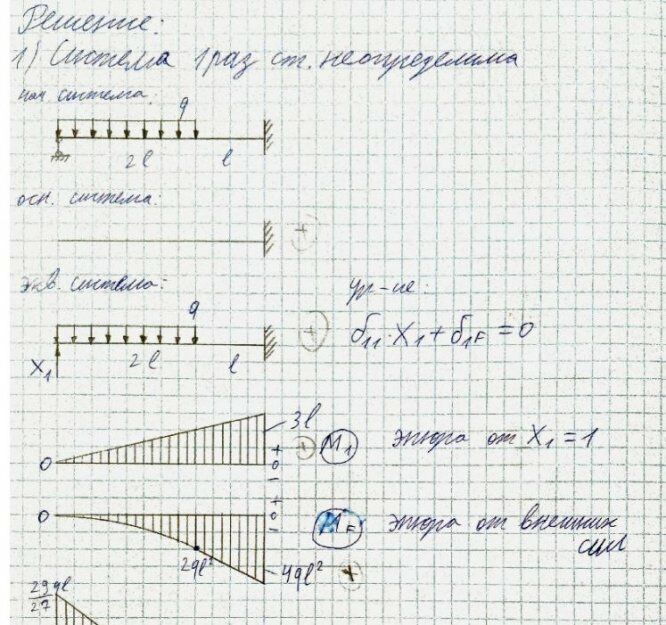 Решение:
1) Система 1 раз ст. неопределима
нач. система:
q
2l l
осн. система:
+
экв. система:
ур-ие:
q
δ11·X1+δ1F=0
X1 2l l +
3l
+ M1 эпюра от X1=1
0 + 0 −
+
0 0 MF эпюра от внешних
− сил
2ql²
4ql² +
29/27 ql